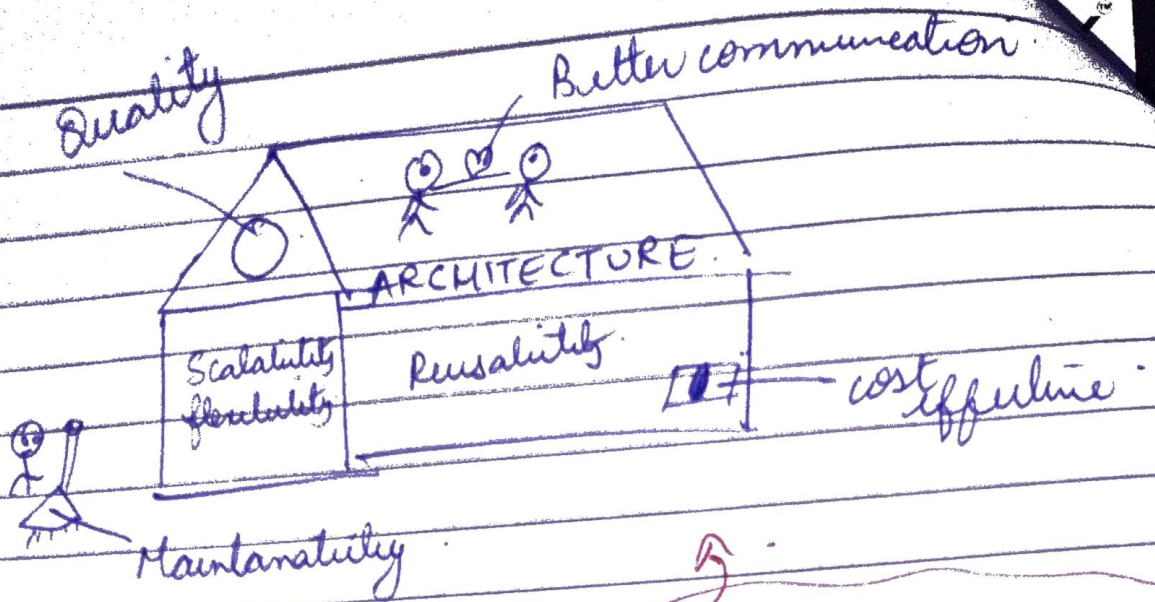 Quality
Better communication
ARCHITECTURE
Scalability
flexibility
Reusability
cost
effective
Maintanability